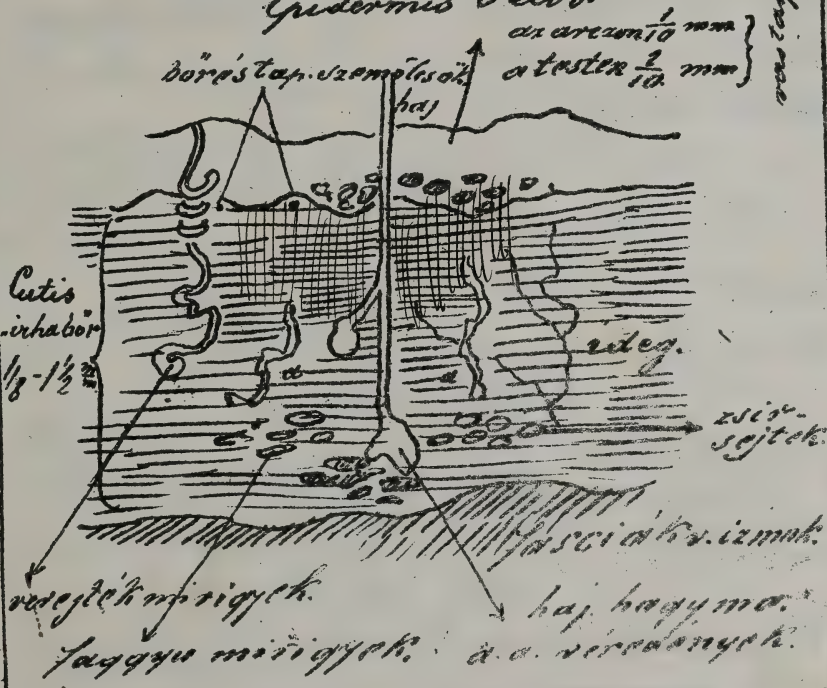 Epidermis
az arczon 1/10 mm
a testen 2/10 mm
bőr és tap. szemölcsök
haj
Cutis
irhabőr
1/8 - 1 1/2 mm
ideg.
a
a
zsir-
sejtek.
fasciák v. izmok.
verejték mirigyek.
haj hagyma.
faggyu mirigyek.
a. a. véredények.